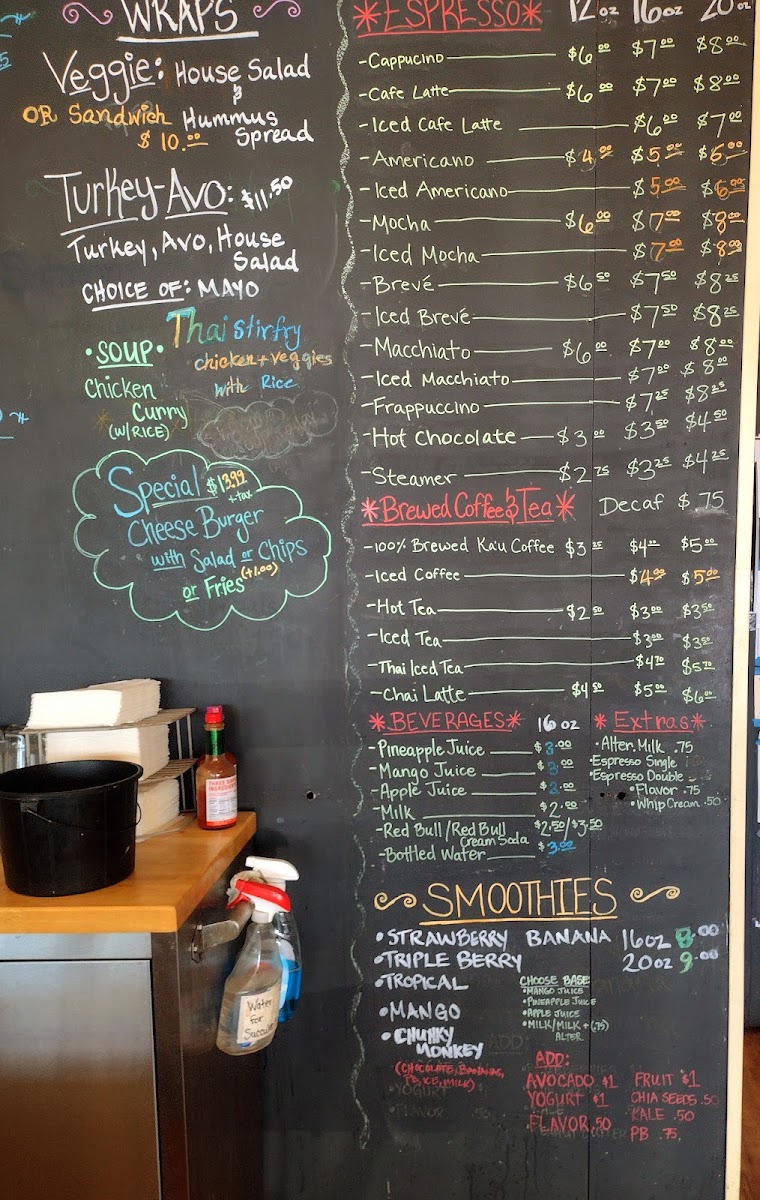 WRAPS
Veggie: House Salad
&
OR Sandwich Hummus
$10.00 Spread
Turkey-Avo: $11.50
Turkey, Avo, House
Salad
CHOICE OF: MAYO
Thai stirfry
chicken + veggies
with Rice
•SOUP•
Chicken
Curry
(W/RICE)
Special $13.99
+tax
Cheese Burger
with Salad or Chips
or Fries (+1.00)
*ESPRESSO* 12oz 16oz 20oz
-Cappucino $6.00 $7.00 $8.00
-Cafe Latte $6.00 $7.00 $8.00
-Iced Cafe Latte $6.00 $7.00
-Americano $4.00 $5.00 $6.00
-Iced Americano $5.00 $6.00
-Mocha $6.00 $7.00 $8.00
-Iced Mocha $7.00 $8.00
-Brevé $6.50 $7.50 $8.25
-Iced Brevé $7.50 $8.25
-Macchiato $6.00 $7.00 $8.00
-Iced Macchiato $7.00 $8.00
-Frappuccino $7.25 $8.25
-Hot Chocolate $3.00 $3.50 $4.50
-Steamer $2.75 $3.25 $4.25
*Brewed Coffee & Tea* Decaf $.75
-100% Brewed Ka'u Coffee $3.25 $4.00 $5.00
-Iced Coffee $4.00 $5.00
-Hot Tea $2.50 $3.00 $3.50
-Iced Tea $3.00 $3.50
-Thai Iced Tea $4.70 $5.70
-Chai Latte $4.50 $5.00 $6.00
*BEVERAGES* 16 oz
-Pineapple Juice $3.00
-Mango Juice $3.00
-Apple Juice $3.00
-Milk $2.00
-Red Bull/Red Bull $2.50/$3.50
Cream Soda
-Bottled Water $3.00
*Extras*
•Altern. Milk .75
•Espresso Single
•Espresso Double
•Flavor .75
•Whip Cream .50
SMOOTHIES
•STRAWBERRY BANANA 16oz 8.00
•TRIPLE BERRY 20oz 9.00
•TROPICAL
•MANGO
•CHUNKY
MONKEY
(CHOCOLATE, BANANAS,
PB, ICE, MILK)
CHOOSE BASE
•MANGO JUICE
•PINEAPPLE JUICE
•APPLE JUICE
•MILK/MILK +(.75)
ALTER
ADD:
AVOCADO $1 FRUIT $1
YOGURT $1 CHIA SEEDS .50
KALE .50
FLAVOR .50 PB .75
YOGURT
FLAVOR .50
THREE SIMPLE
INGREDIENTS
Water
for